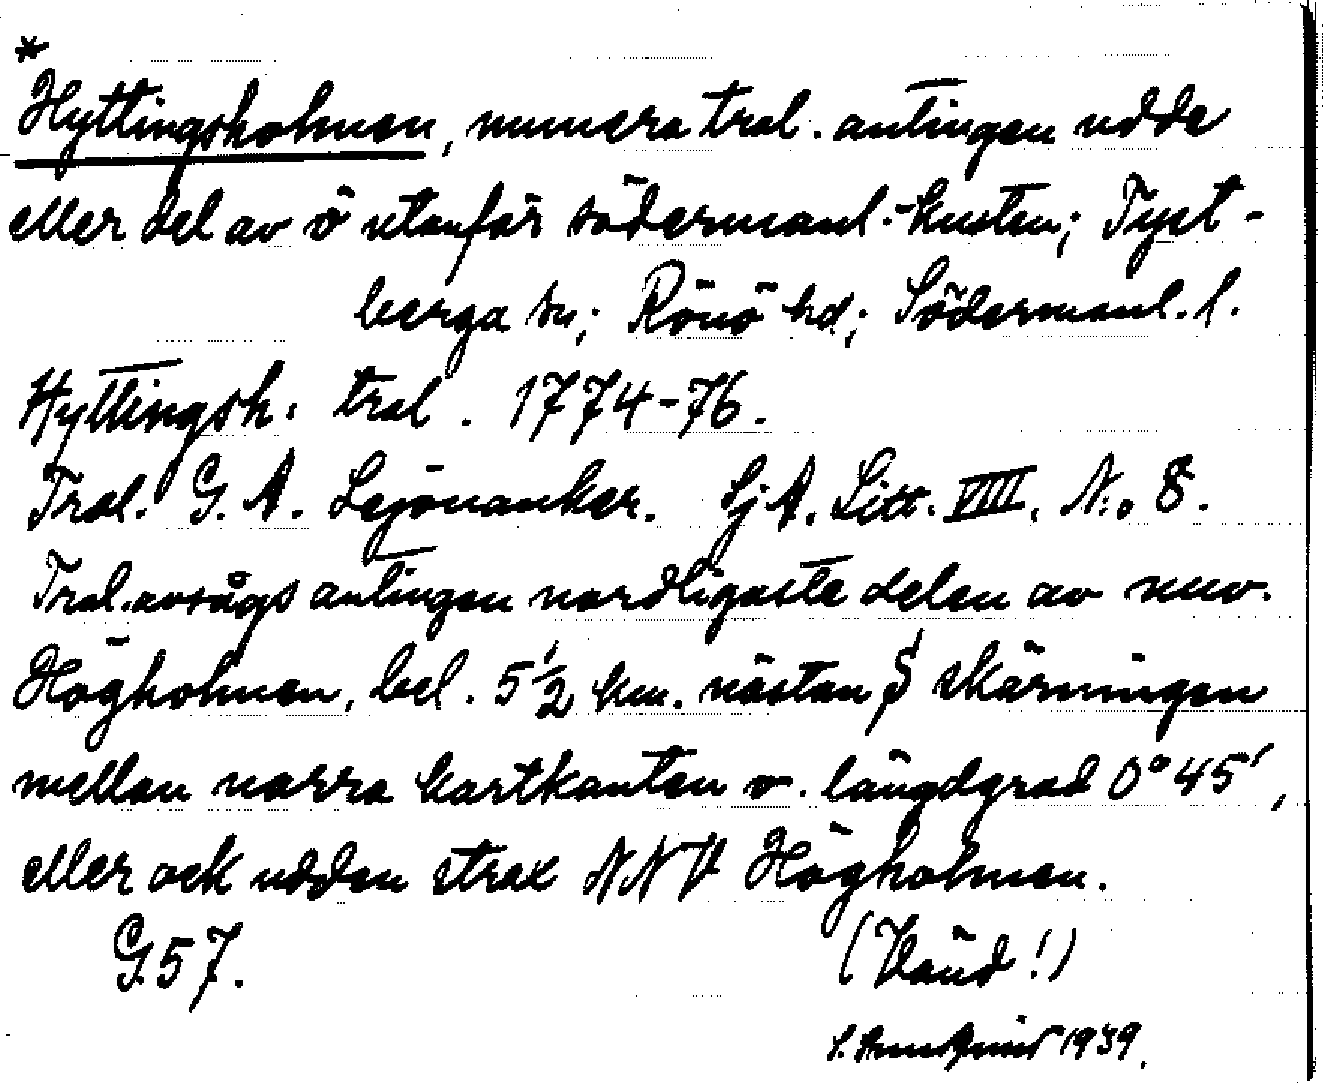 *
Hyttingsholmen, numera trol. antingen udde
eller del av ö utanför södermanl.-kusten; Tyst-
berga sn; Rönö hd; Södermanl. l.
Hyttingsh: trol. 1774-76.
Trol. G. A. Lejonanker. SjA. Litt. VIII. N:o 8.
Trol. avsågs antingen nordligaste delen av nuv.
Högholmen, bel. 5 1/2 km. nästan S skärningen
mellan norra kartkanten o. längdgrad 0° 45',
eller ock udden strax NNV Högholmen.
G57. (Vänd!)
1939.